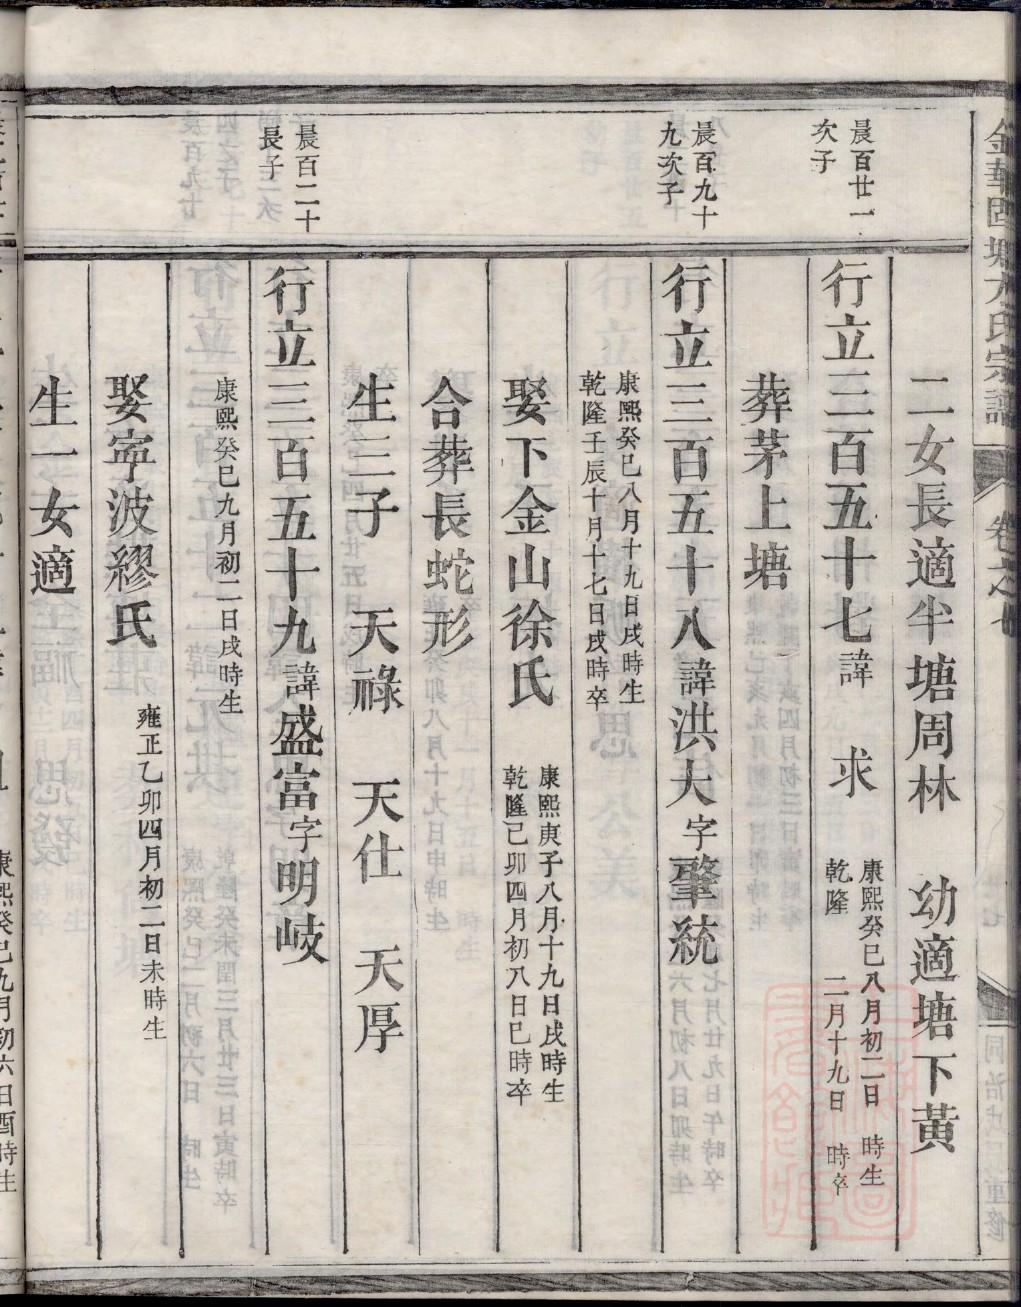 金華固塘方氏宗譜
卷之七
同治戊辰重修
二女長適半塘周林　幼適塘下黃
晨百廿一
次子
行立三百五十七諱　求
康熙癸巳八月初二日　時生
乾隆　二月十九日　時卒
葬茅上塘
晨百九十
九次子
行立三百五十八諱洪大字肇統
康熙癸巳八月十九日戌時生
乾隆壬辰十月十七日戌時卒
娶下金山徐氏
康熙庚子八月十九日戌時生
乾隆己卯四月初八日巳時卒
合葬長蛇形
生三子　天祿　天仕　天厚
晨百二十
長子
行立三百五十九諱盛富字明岐
康熙癸巳九月初二日戌時生
娶寧波繆氏
雍正乙卯四月初二日未時生
生一女適
康熙癸巳九月初六日酉時生